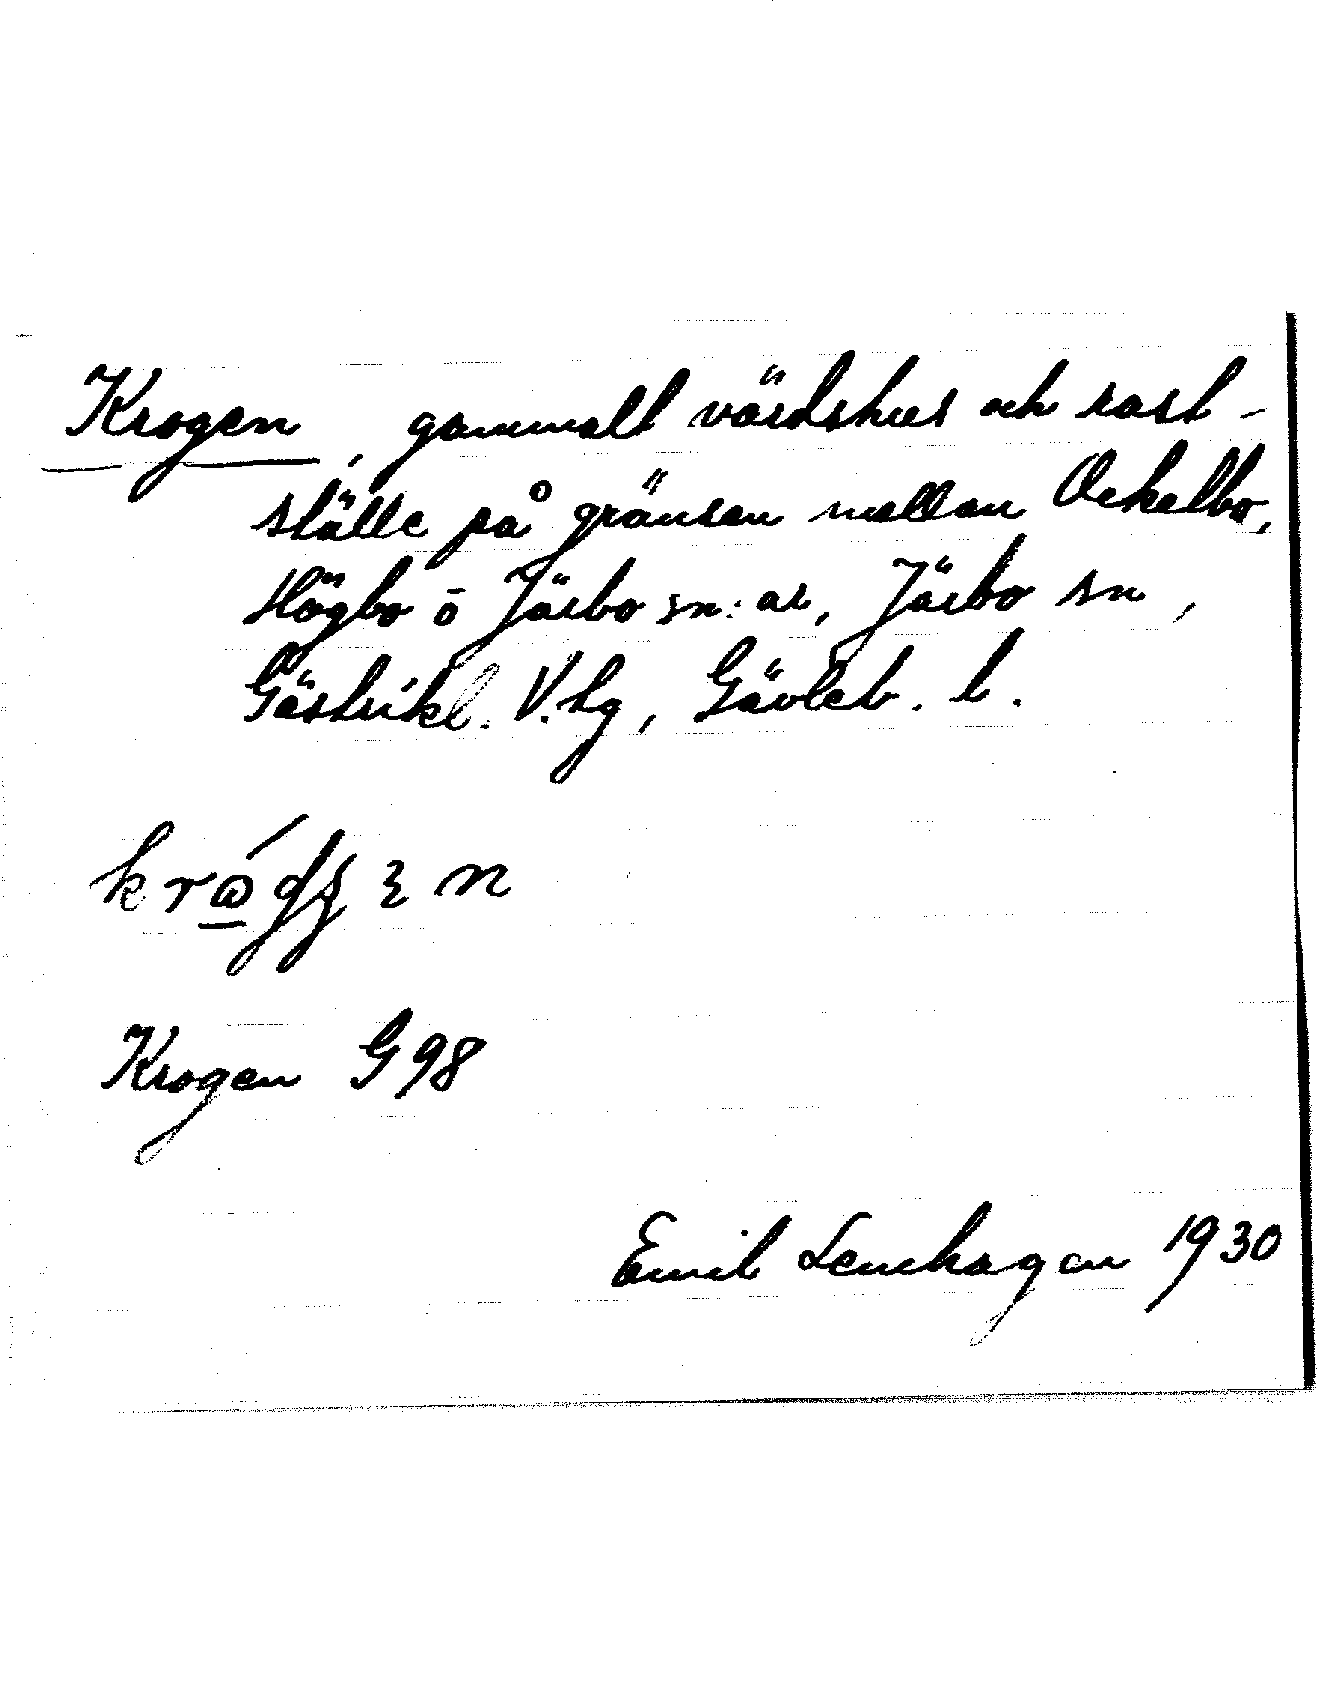 Krogen, gammalt värdshus och rast-
ställe på gränsen mellan Ockelbo,
Högbo ō Järbo sn:ar, Järbo sn,
Gästrikl. V. tg, Gävleb. l.
Krogen G 98
Emil Lenehagen 1930